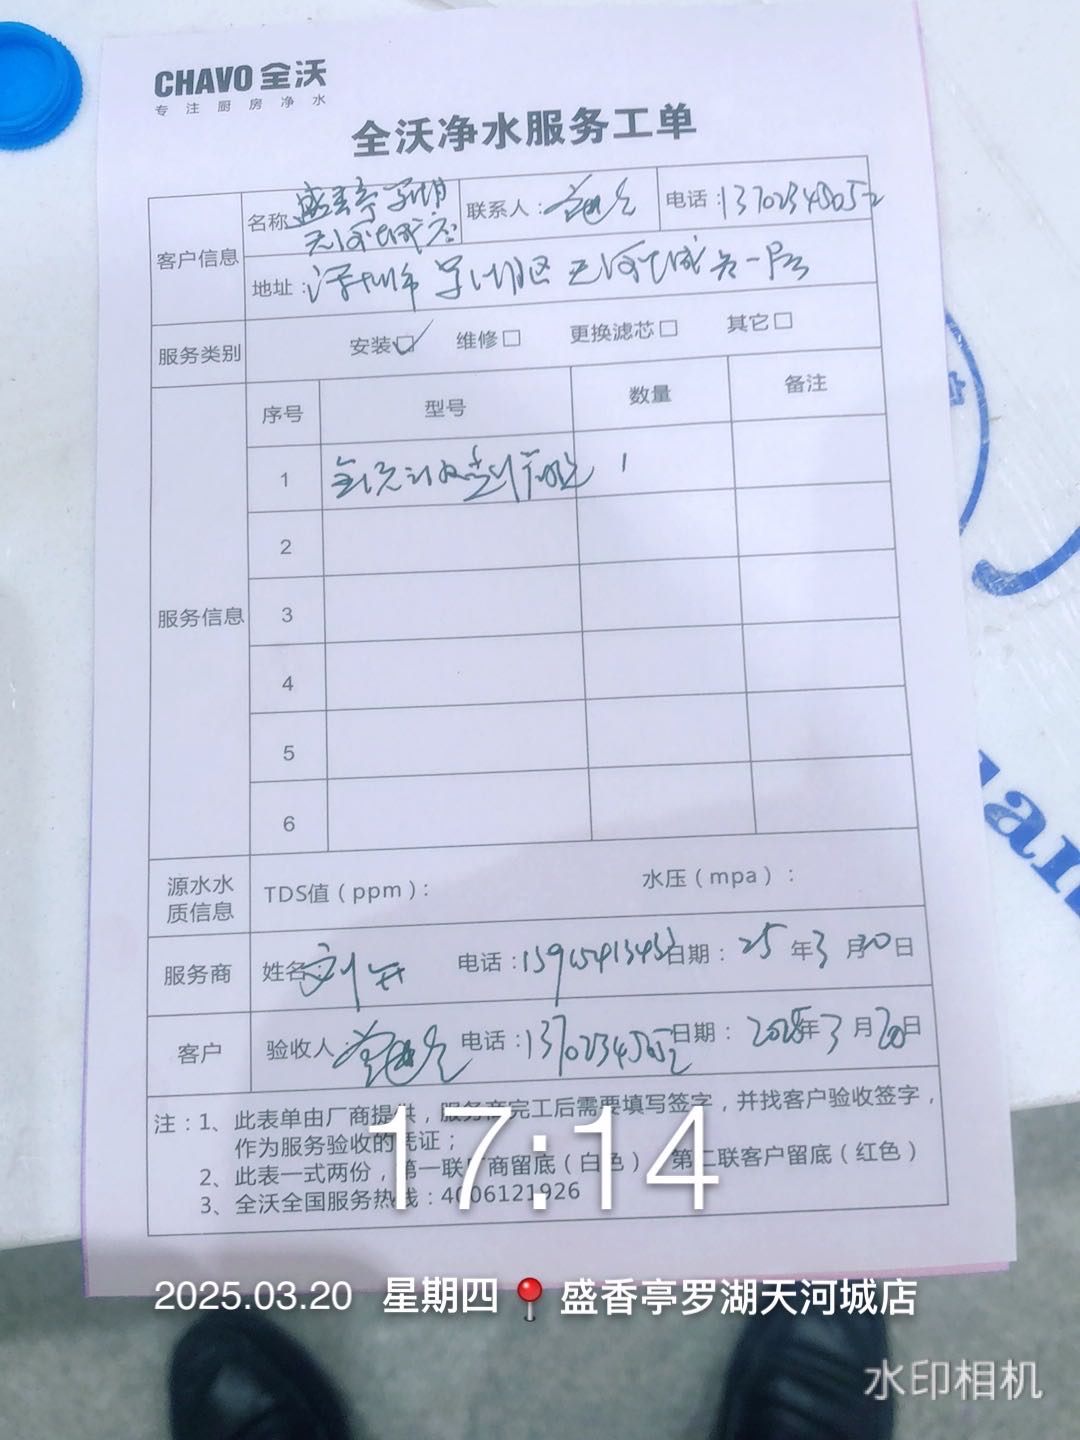 CHAVO 全沃
专注厨房净水
全沃净水服务工单
客户信息
名称 盛香亭罗湖
天河城店
联系人:
电话:13702345052
地址:深圳市罗湖区天河城负一层
服务类别
安装☑ 维修□ 更换滤芯□ 其它□
服务信息
序号 型号 数量 备注
1 1
2
3
4
5
6
源水水
质信息
TDS值(ppm): 水压(mpa):
服务商
姓名:刘 电话: 日期:25年3月20日
客户
验收人: 电话:13702345052 日期:2025年3月20日
注:1、此表单由厂商提供,服务商完工后需要填写签字,并找客户验收签字,
作为服务验收的凭证;
2、此表一式两份,第一联厂商留底(白色),第二联客户留底(红色)
3、全沃全国服务热线:4006121926
17:14
2025.03.20 星期四 盛香亭罗湖天河城店
水印相机